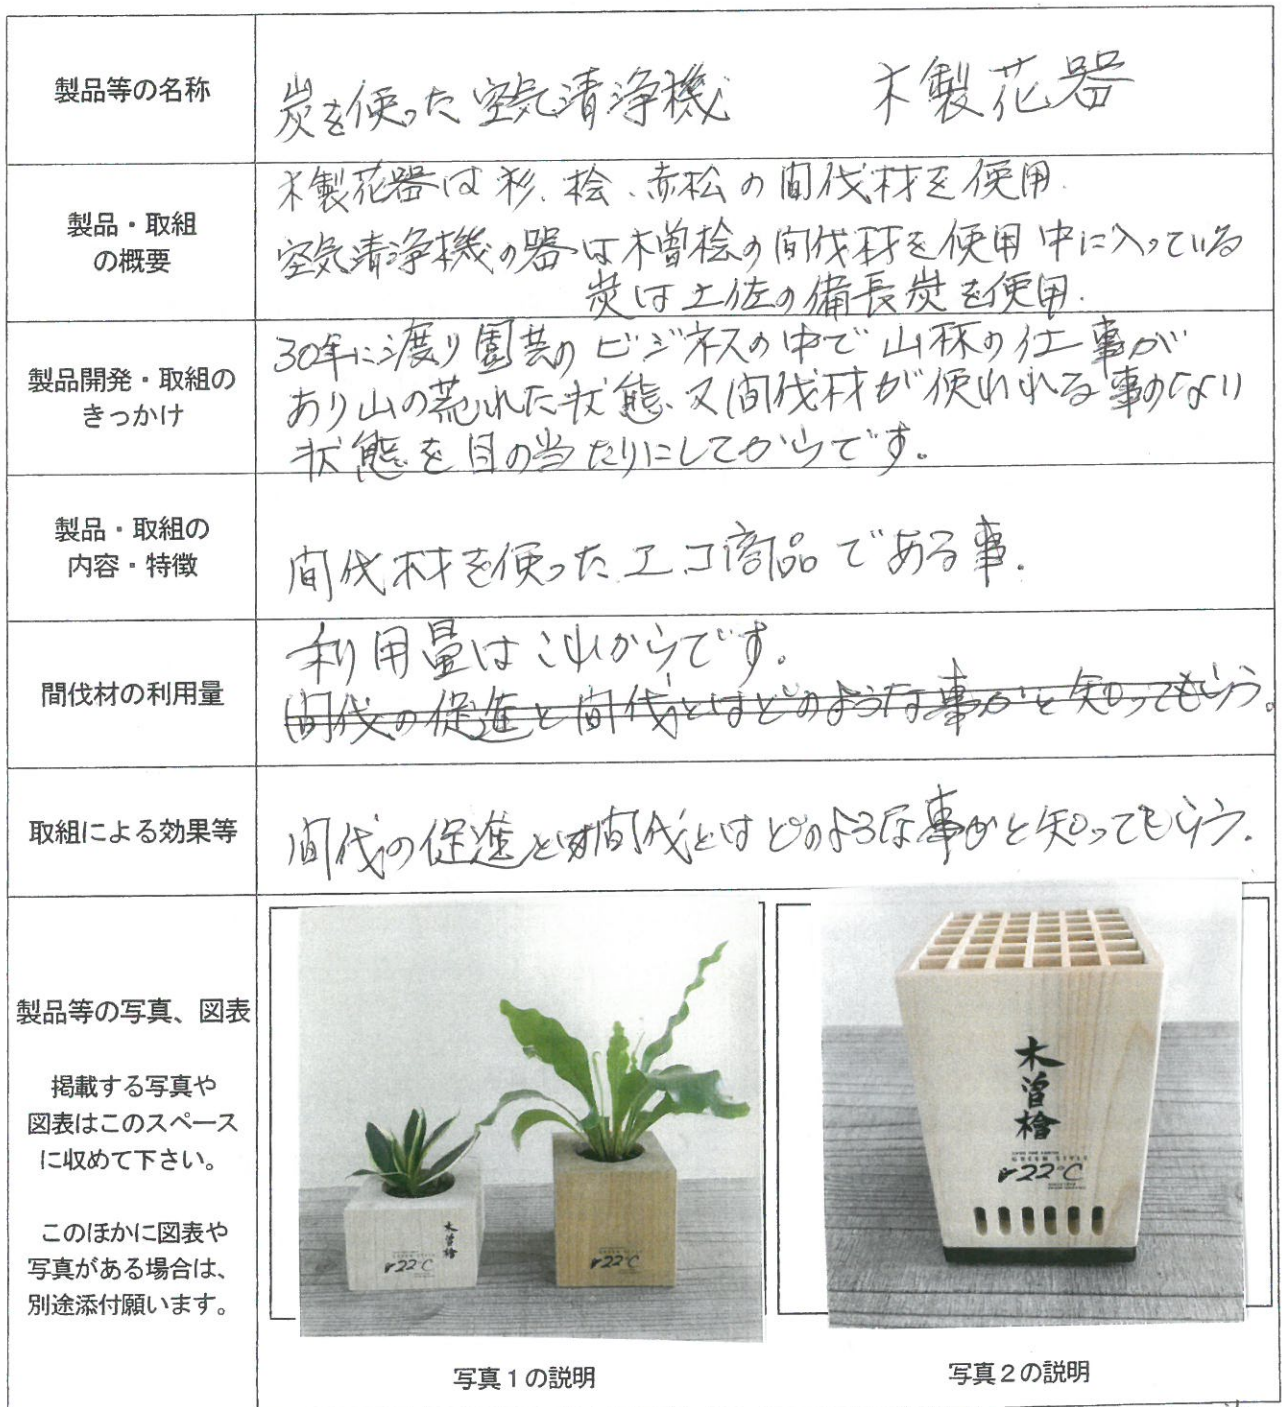 製品等の名称
炭を使った空気清浄機 木製花器
製品・取組
の概要
木製花器は杉、桧、赤松の間伐材を使用.
空気清浄機の器は木曽桧の間伐材を使用 中に入っている
炭は土佐の備長炭を使用.
製品開発・取組の
きっかけ
30年に渡り園芸のビジネスの中で山林の仕事が
あり山の荒れた状態、又間伐材が使われる事のない
状態を目の当たりにしてからです。
製品・取組の
内容・特徴
間伐材を使ったエコ商品である事.
間伐材の利用量
利用量はこれからです。
間伐の促進と間伐とはどのような事かと知ってもらう。
取組による効果等
間伐の促進と間伐とはどのような事かと知ってもらう.
製品等の写真、図表
掲載する写真や
図表はこのスペース
に収めて下さい。
このほかに図表や
写真がある場合は、
別途添付願います。
木曽檜
GREEN STYLE
22°C
22°C
木曽檜
GREEN STYLE
22°C
写真1の説明
写真2の説明